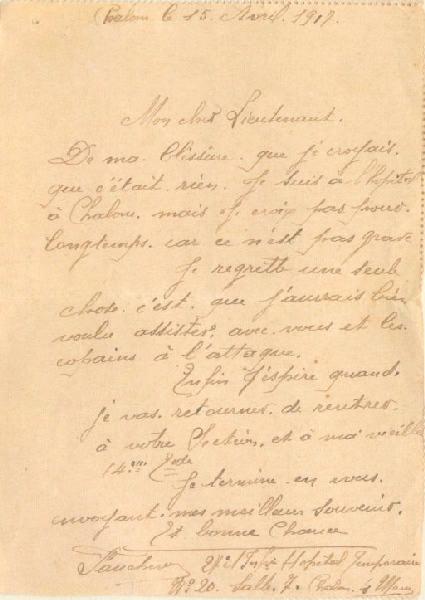 Chalon le 15 Avril 1917.
Mon cher Lieutenant.
De ma blissure que je croyais.
que c'était rien. Je suis à l'hopital
à Chalon. mais je croix pas pour
longtemps. car ce n'est pas grave
Je regrette une seule
chose c'est que j'aurais bien
voulu assister avec vous et les
copains à l'attaque.
Enfin j'espère quand.
je vas retourner de rentrer
à votre Section, et à ma vieille
14.me
Je termine en vous
envoyant mes meilleurs souvenirs.
Et bonne Chance
27e Hopital Temporaire
No 20. Salle 7. Chalon s